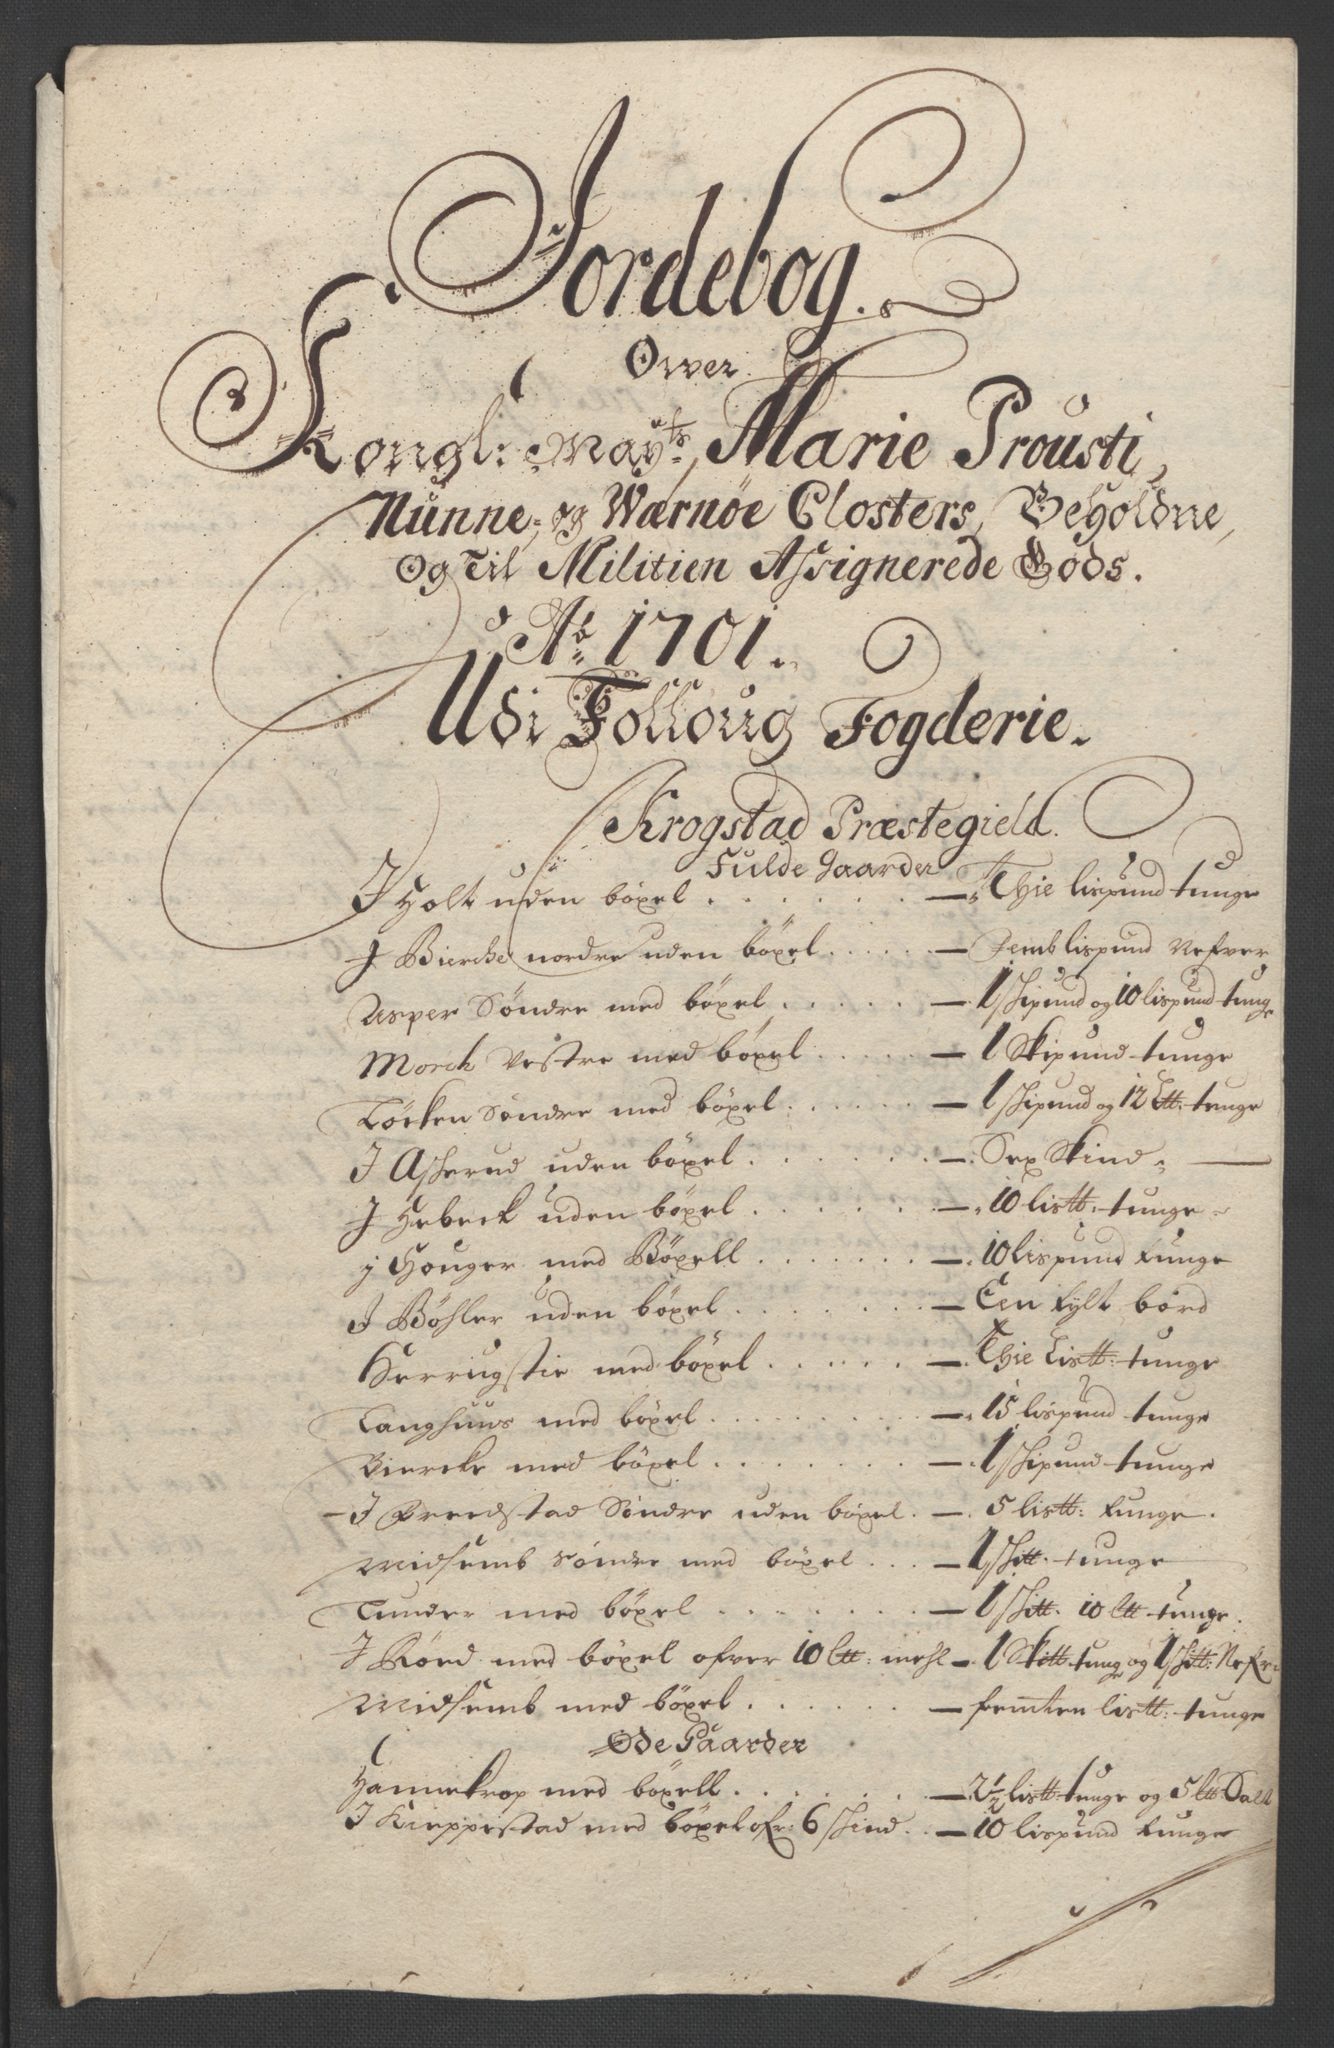 Jordebog.
Over
Kongl: Mayts Marie Prousti,
Nunne, og Wærnöe Closters, Beholdne,
Og Til Militien Assignerede Gods.
Ao 1701.
Udi Folloug Fogderie.
Krogstad Præstegield.
Fulde Gaarder
J Holt uden böxel . . . . . . — Thie lispund tunge
J Biercke nordre uden böxel . . . . . — Femb lispund Nefver
Asper Söndre med böxel . . . . . — 1 shipund og 10 lispund tunge
Morck Vestre med böxel . . . . . — 1 Skipund tunge
Löcken Söndre med böxel . . . . . . — 1 shipund og 12 Ltt: tunge
J Asherud uden böxel . . . . . . — Sex Skind
J Hebeck uden böxel . . . . . . — 10 listt: tunge
j Houger med Böxell . . . . . . — 10 lispund tunge
J Böhler uden böxel . . . . . . — Een tylt bord
Herrugstie med böxel . . . . . — Thie Listt: tunge
Langhuus med böxel . . . . . . — 15 lispund tunge
Biercke med böxel . . . . . . — 1 shipund tunge
J Breedstad Söndre uden böxel . — 5 listt: tunge.
Midsemb Söndre med böxel . . . — 1 shitt. tunge
Tunder med böxel . . . . . . — 1 shitt. 10 ltt tunge.
J Röed med böxel ofver 10 ltt: mehl — 1 Skitt tung og 1 shitt: Nefr:
Midsemb med böxel . . . . . . — femten listt: tunge
Öde Gaarder
Hannekrop med böxell . . . . . . — 2 1/2 listt tunge og 5 ltt Salt
J Kieppestad med böxel ofr: 6 shind . — 10 lispund tunge